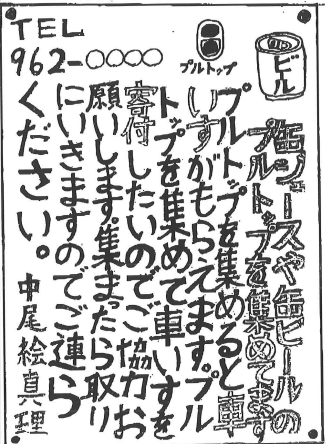 缶ジュースや缶ビールの
プルトップを集めてます
プルトップを集めると車
いすがもらえます。プル
トップを集めて車いすを
寄付したいのでご協力お
願いします。集まったら取り
にいきますのでご連ら
ください。
中尾絵真理
ビール
プルトップ
TEL
962-○○○○